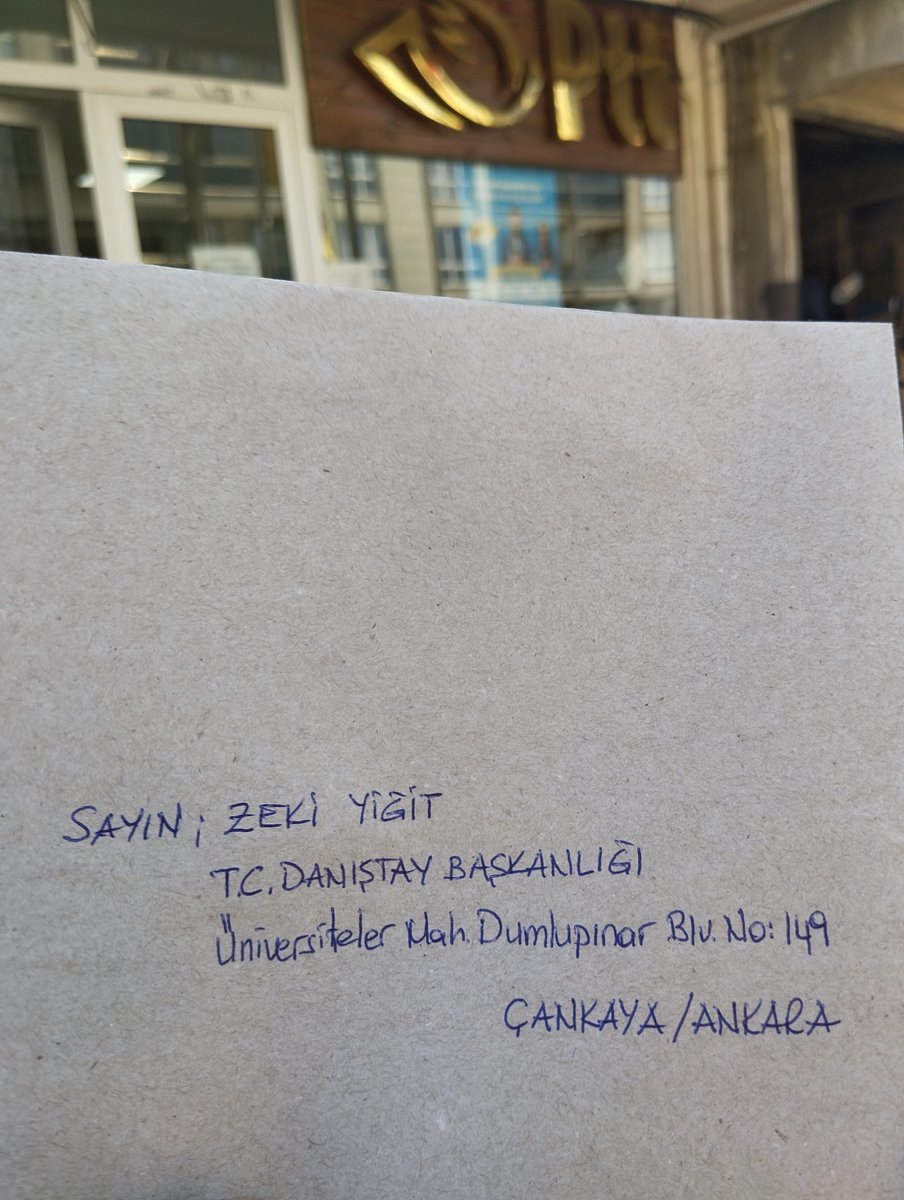 Ptt
SAYIN; ZEKİ YİĞİT
T.C. DANIŞTAY BAŞKANLIĞI
Üniversiteler Mah. Dumlupınar Blv. No: 149
ÇANKAYA/ANKARA